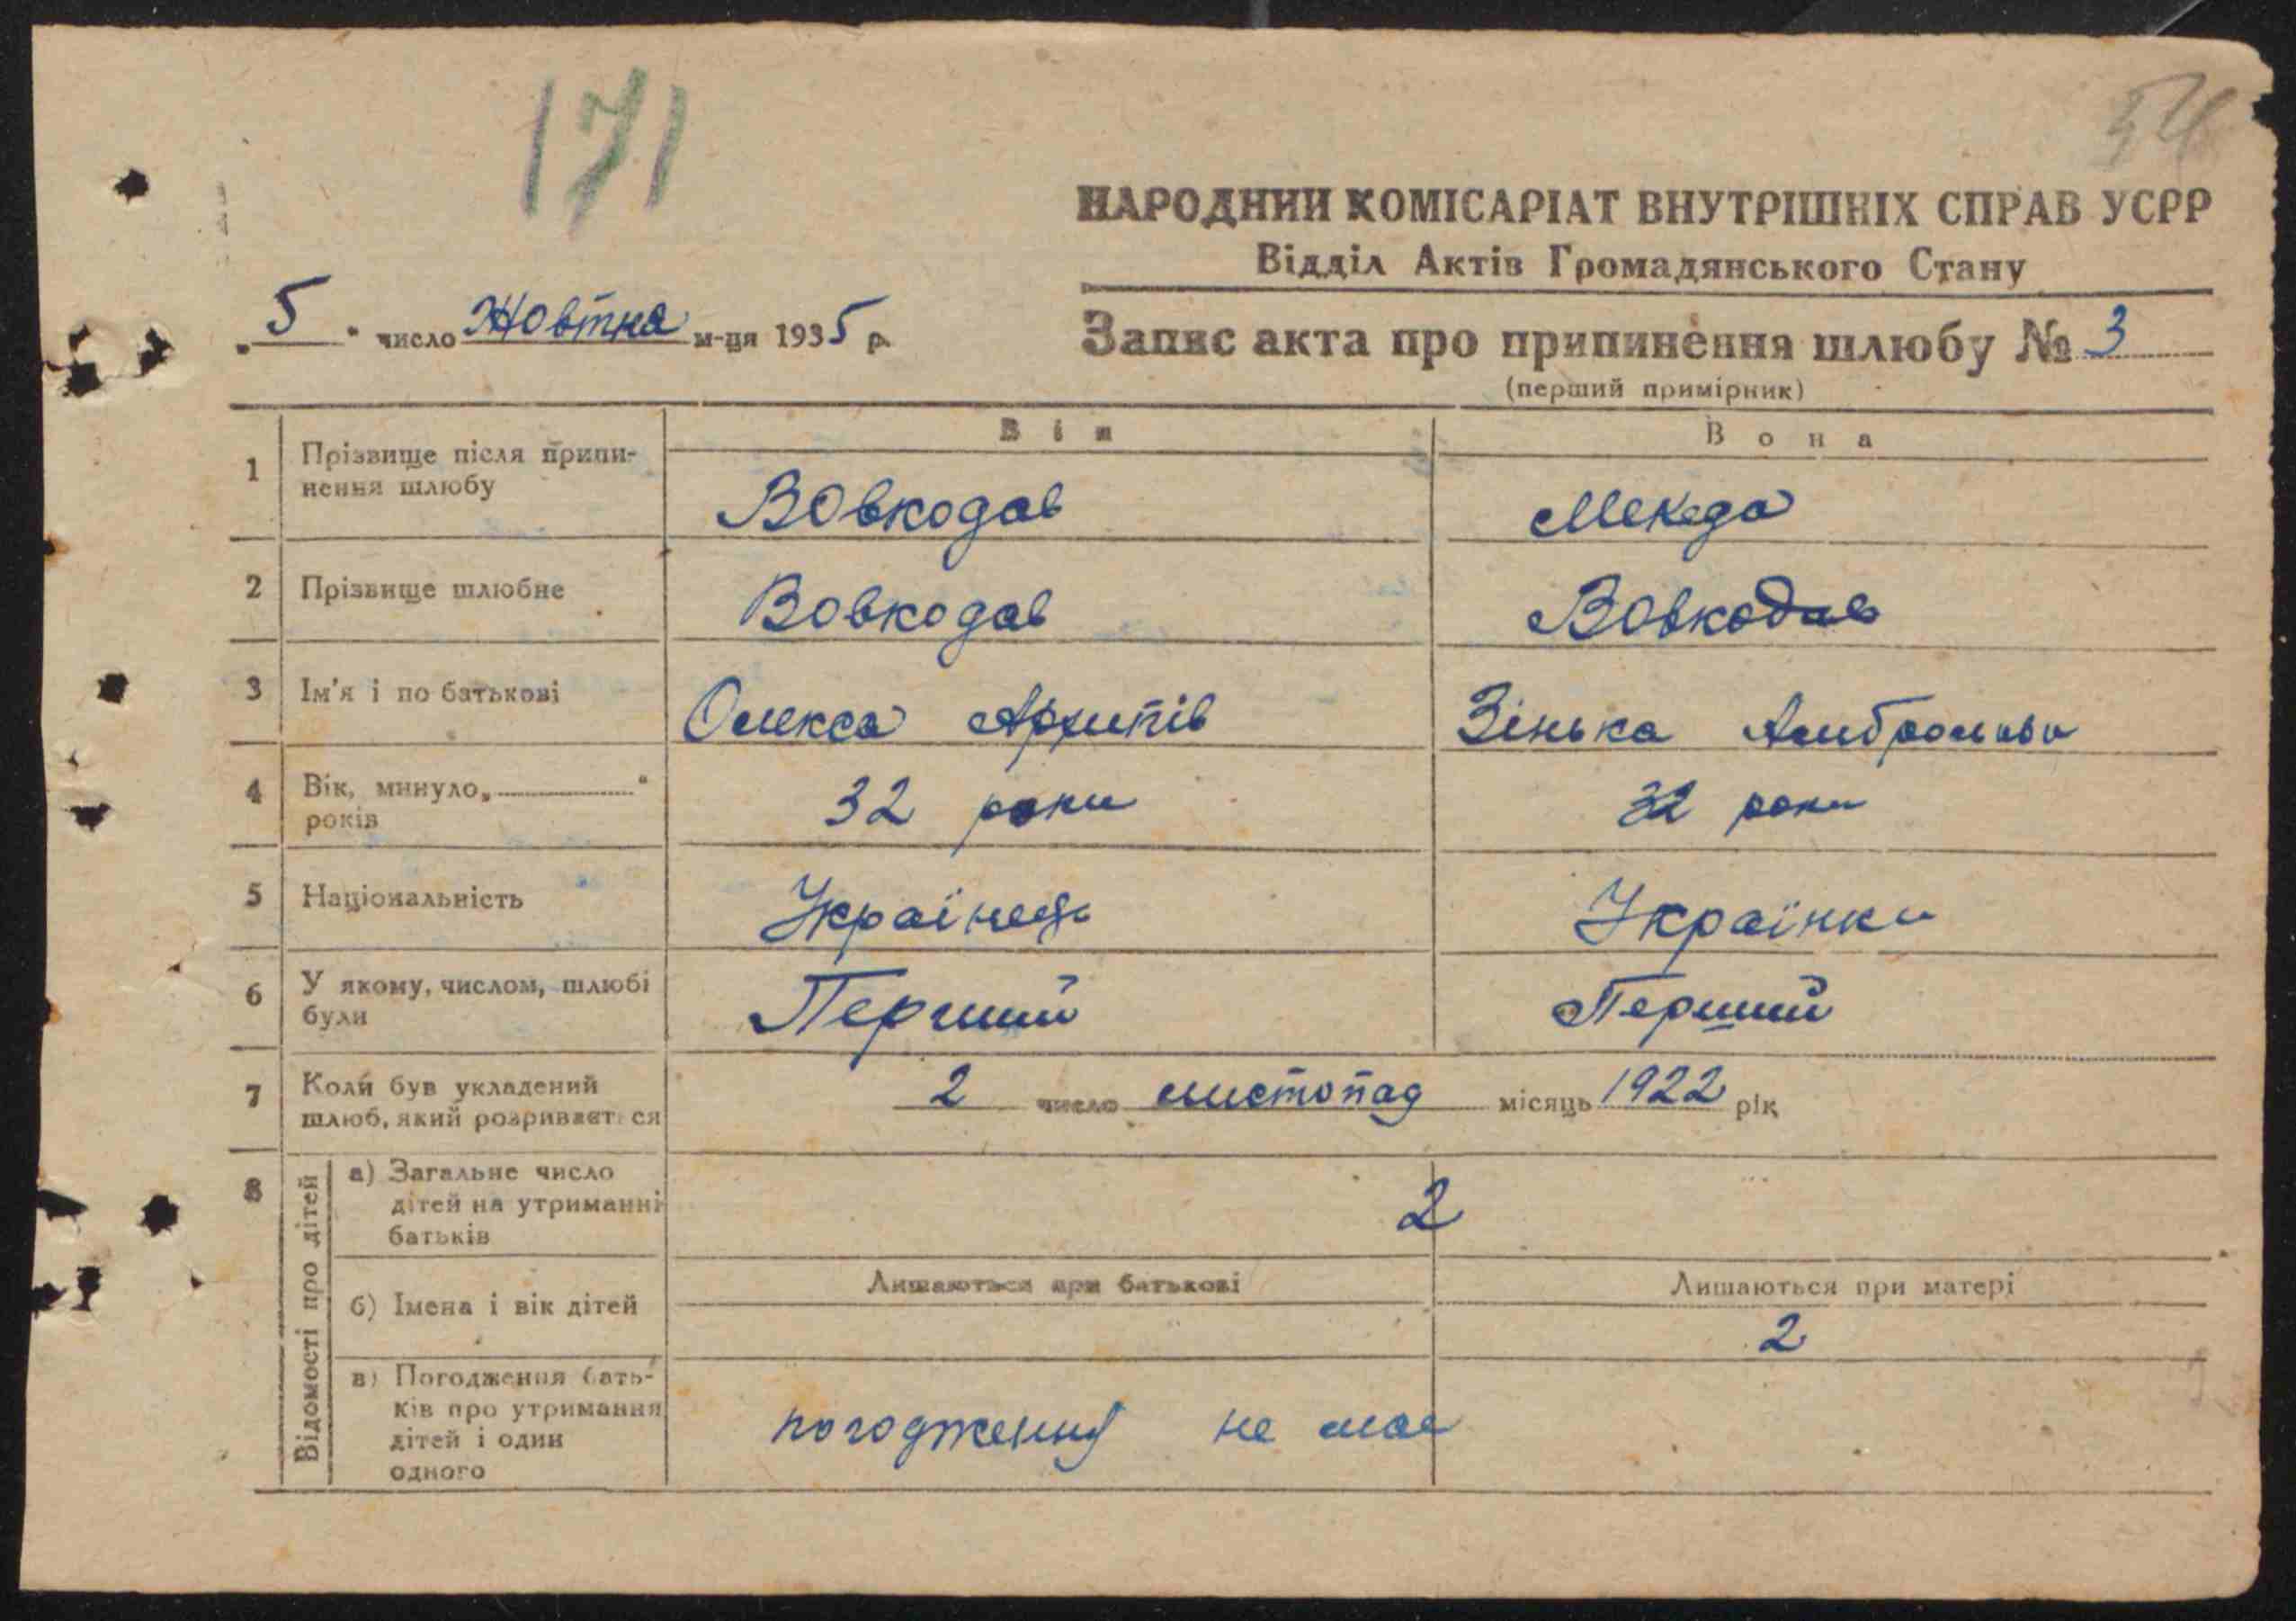 171
54
НАРОДНИЙ КОМІСАРІАТ ВНУТРІШНІХ СПРАВ УСРР
Відділ Актів Громадянського Стану
„5“ число Жовтня м-ця 1935 р.
Запис акта про припинення шлюбу № 3
(перший примірник)
Він Вона
1 Прізвище після припи-
нення шлюбу Вовкодав Мекеда
2 Прізвище шлюбне Вовкодав Вовкодав
3 Ім'я і по батькові Олекса Архипів Зінька
4 Вік, минуло „ “
років 32 роки 32 роки
5 Національність Українець Українка
6 У якому, числом, шлюбі
були Перший Перший
7 Коли був укладений
шлюб, який розривається 2 число листопад місяць 1922 рік
8 Відомості про дітей
а) Загальне число
дітей на утриманні
батьків 2
б) Імена і вік дітей Лишаються при батькові Лишаються при матері
2
в) Погодження бать-
ків про утримання
дітей і один
одного погодження не має